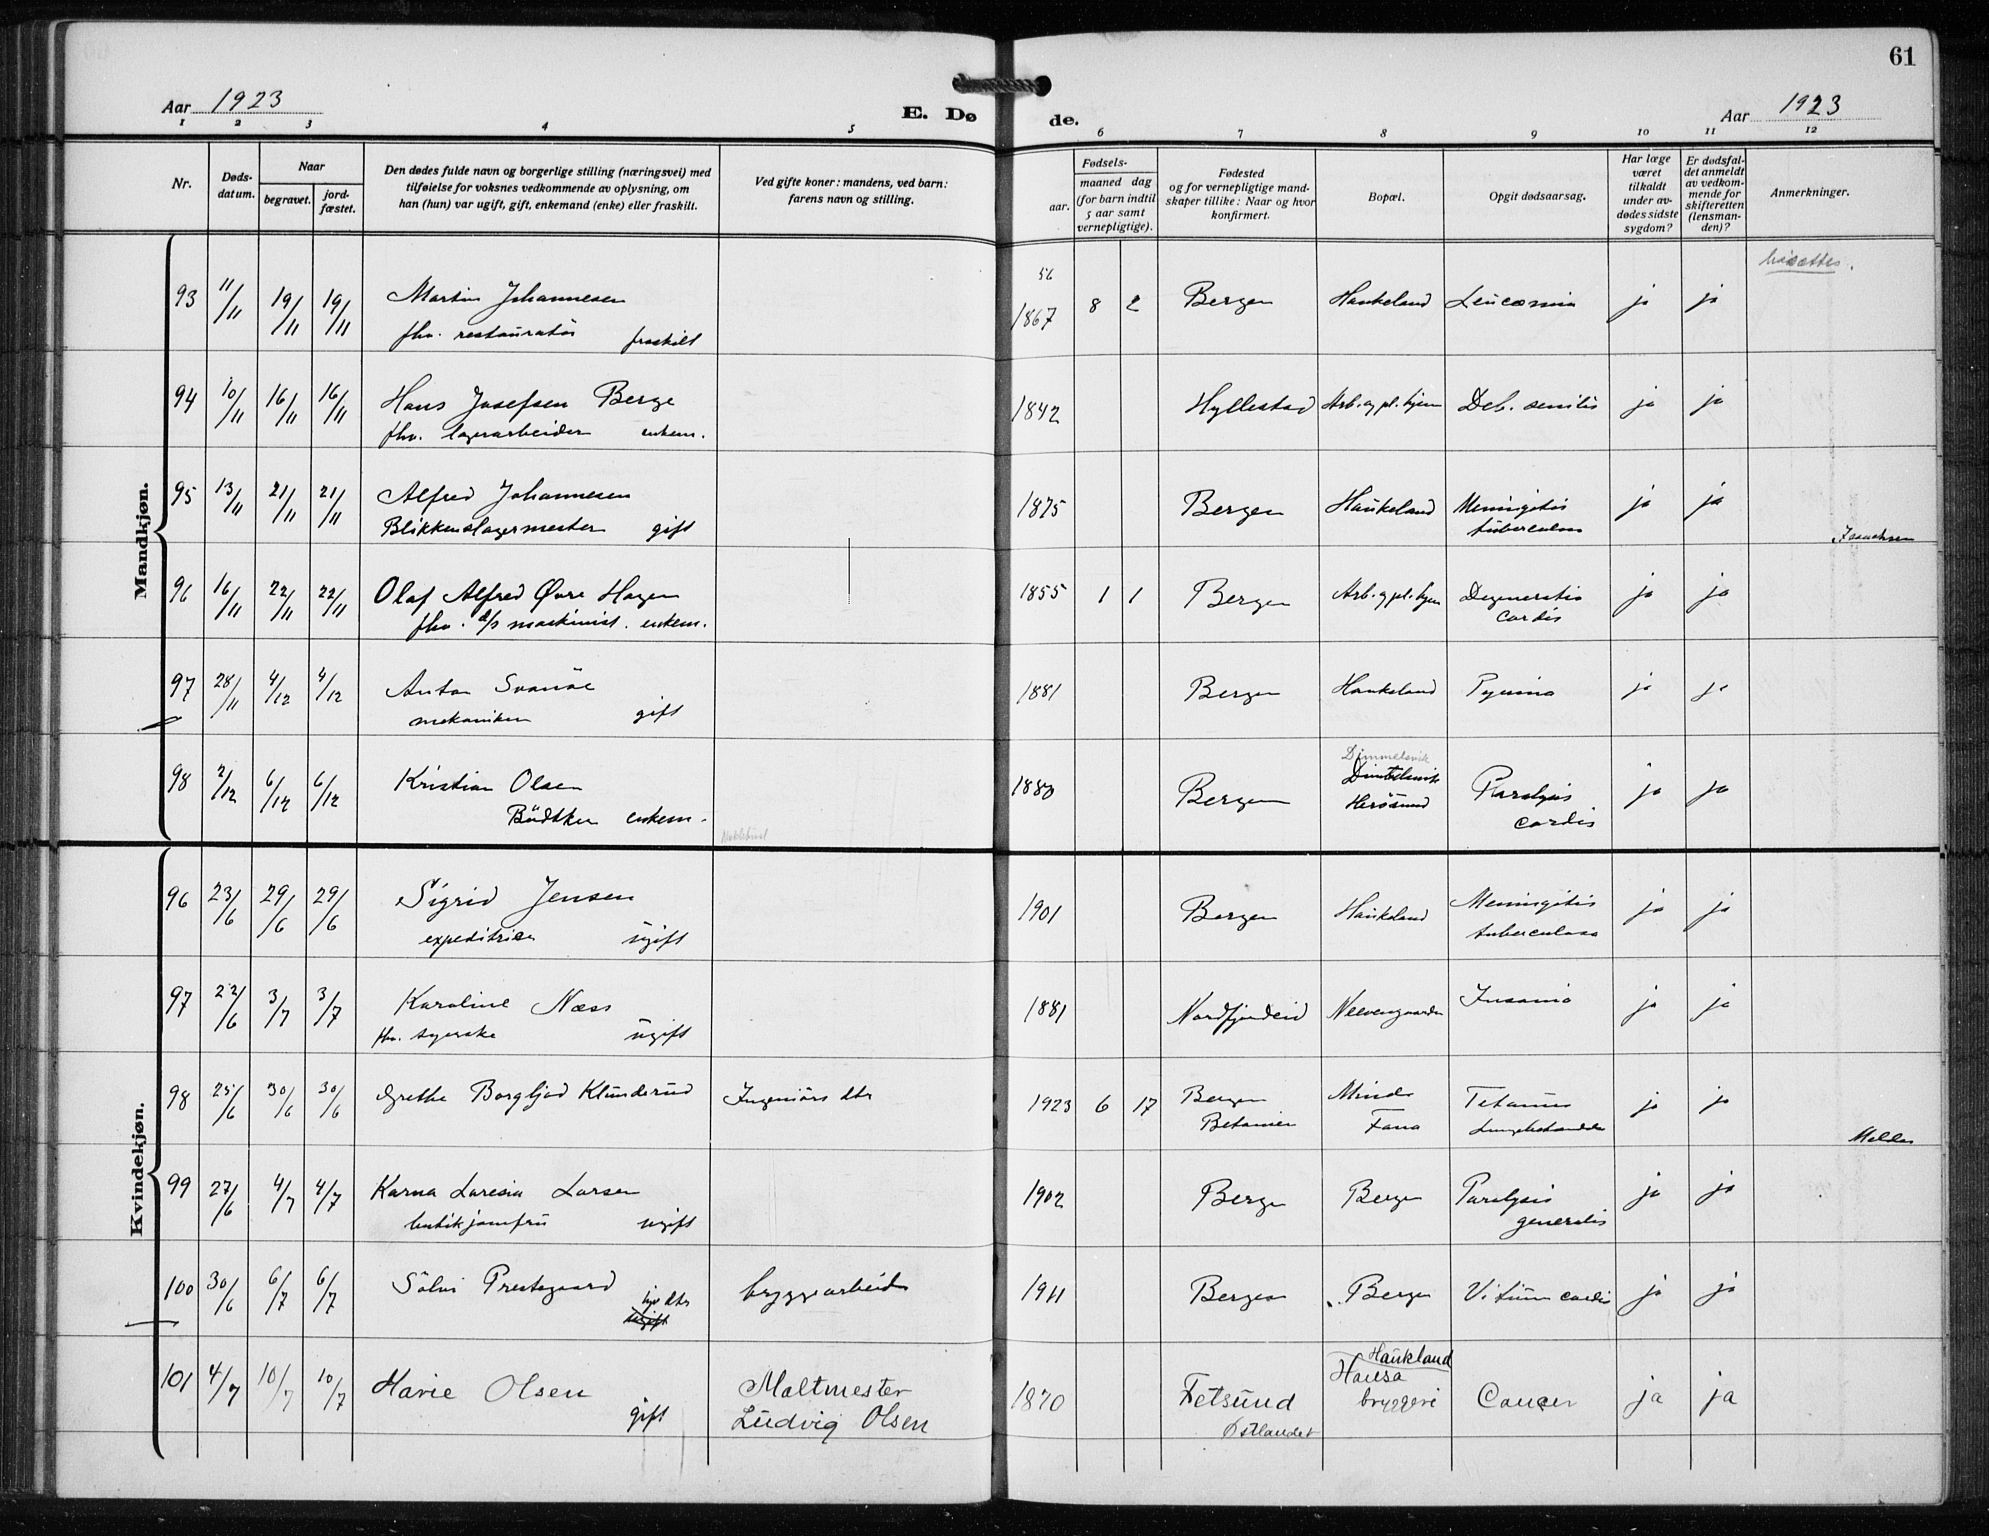 61
Aar 1923
E. Dø
de.
Aar 1923
1 2 3 4 5 6 7 8 9 10 11 12
Nr.
Døds-
datum.
Naar
begravet.
jord-
fæstet.
Den dødes fulde navn og borgerlige stilling (næringsvei) med
tilføielse for voksnes vedkommende av oplysning, om
han (hun) var ugift, gift, enkemand (enke) eller fraskilt.
Ved gifte koner: mandens, ved barn:
farens navn og stilling.
Fødsels-
aar.
maaned dag
(for barn indtil
5 aar samt
vernepligtige).
Fødested
og for vernepligtige mand-
skaper tillike: Naar og hvor
konfirmert.
Bopæl.
Opgit dødsaarsag.
Har læge
været
tilkaldt
under av-
dødes sidste
sygdom?
Er dødsfal-
det anmeldt
av vedkom-
mende for
skifteretten
(lensman-
den)?
Anmerkninger.
Mandkjøn.
bisættes.
56
93 11/11 19/11 19/11 Martin Johannesen 1867 8 2 Bergen Haukeland Leucæmia ja ja
fhv. restauratør fraskilt
94 10/11 16/11 16/11 Hans Josefsen Berge 1842 Hyllestad Arb. og pl. hjem Deb. senilis ja ja
fhv. lagerarbeider enkem.
95 13/11 21/11 21/11 Alfred Johannesen 1875 Bergen Haukeland Meningitis ja ja
Blikkenslagermester gift tuberculosa
Isaachsen
96 16/11 22/11 22/11 Olaf Alfred Øvre Hagen 1855 1 1 Bergen Arb. og pl. hjem Degeneratio ja ja
fhv. d/s maskinist. enkem. cordis
97 28/11 4/12 4/12 Anton Svanöe 1881 Bergen Haukeland Pyæmia ja ja
mekaniker gift
Dimmelsvik
98 2/12 6/12 6/12 Kristian Olsen 1880 Bergen Dimmelsvik Paralysis ja ja
Bödtker enkem. Herøsund cordis
Kvindekjøn.
96 23/6 29/6 29/6 Sigrid Jensen 1901 Bergen Haukeland Meningitis ja ja
expeditrice ugift tuberculosa
97 22/6 3/7 3/7 Karoline Næss 1881 Nordfjordeid Neevengaarden Insania ja ja
fhv. syerske ugift
98 25/6 30/6 30/6 Grethe Borgljod Klunderud Ingeniörs dtr 1923 6 17 Bergen Minde Tetanus ja ja
Betanien Fana
99 27/6 4/7 4/7 Karna Laresia Larsen 1902 Bergen Bergen Paralysis ja ja
butikjomfru ugift generalis
100 30/6 6/7 6/7 Sölvi Prestegaard bryggearbeider 1911 Bergen Bergen Vitium cordis ja ja
dtr
ugift
Haukland
101 4/7 10/7 10/7 Marie Olsen Maltmester 1870 Fetsund Hansa Cancer ja ja
gift Ludvig Olsen Østlandet bryggeri